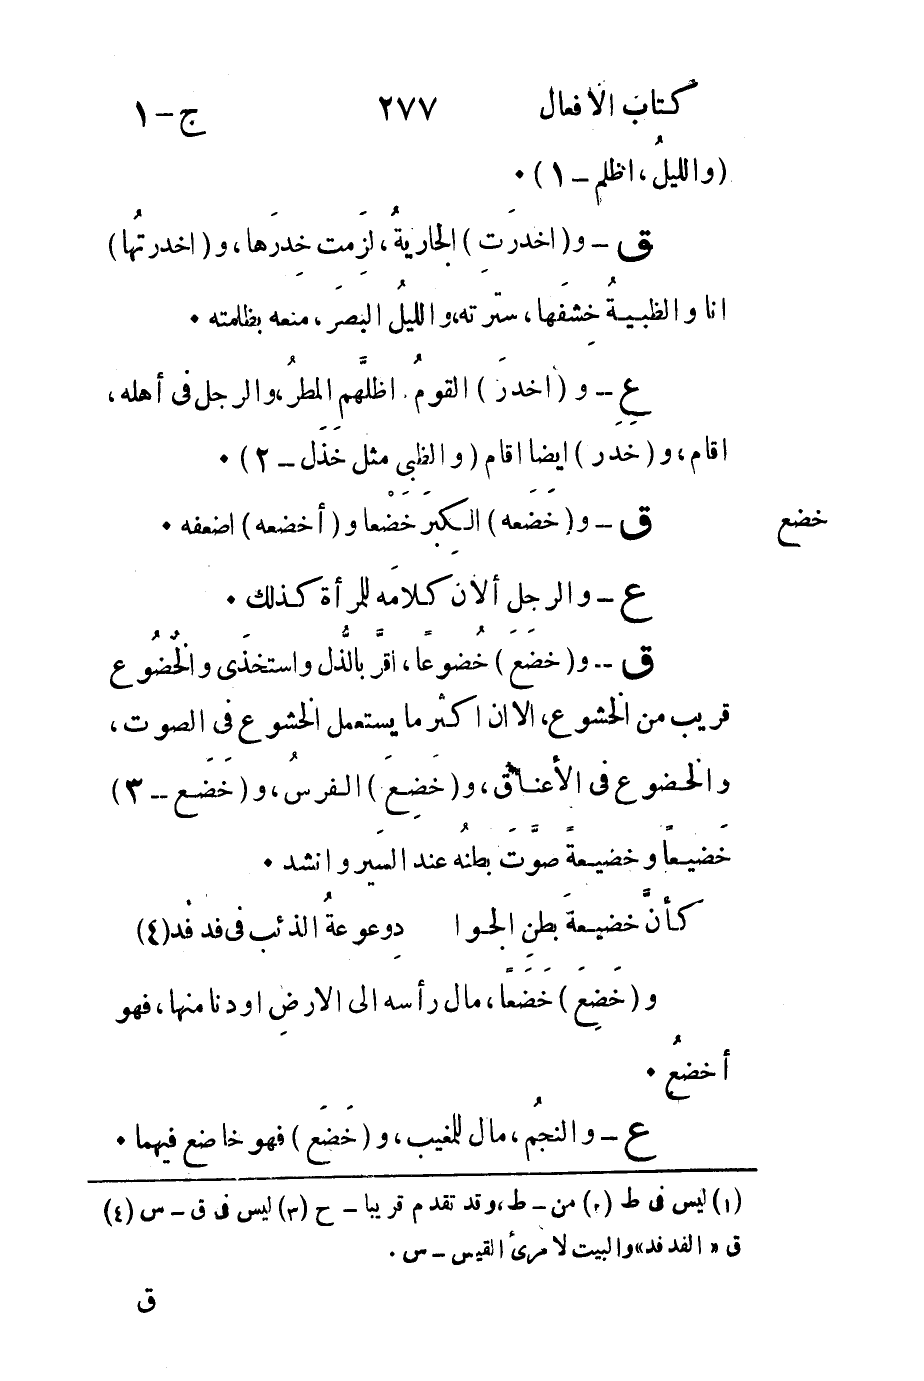 كتاب الافعال ٢٧٧ ج-١
(والليلُ، اظلم – ١) •
ق – و(اخدرَتِ) الجاريةُ، لزِمت خِدرَها، و(اخدرتُها)
انا والظبيةُ خِشفَها، سترته، والليلُ البصرَ، منعه بظلمته •
ع – و (أخدرَ) القومُ اظلَّهم المطرُ، والرجل فى أهله،
اقام، و(خدر) ايضا اقام (والظبى مثل خَذَل – ٢) •
خضع
ق – و(خَضَعه) الكِبَر خَضْعا و(أخضعه) اضعفه •
ع – والرجل ألان كلامَه للمرأة كذلك •
ق – و(خضَعَ) خُضوعاً، اقرَّ بالذُّل واستخذَى والخُضُوع
قريب من الخشوع، الا ان اكثر ما يستعمل الخشوع فى الصوت،
والخضوع فى الأعناق، و(خَضِعَ) الفرسُ، و(خَضَع – ٣)
خَضيعاً وخضيعةً صوَّتَ بطنُه عند السَير وانشد •
كأنَّ خضيعةَ بطنِ الجوا دِ وعوعةُ الذئب فى فدفْد(٤)
و(خَضِعَ) خَضَعًا، مال رأسه الى الارضِ او دنا منها، فهو
أخضعُ •
ع – والنجمُ، مال للمغيب، و(خَضَع) فهو خاضع فيهما •
(١) ليس فى ط (٢) من – ط، وقد تقدم قريبا – ح (٣) ليس فى ق – س (٤)
ق «الفدفد» والبيت لامرئ القيس – س •
ق